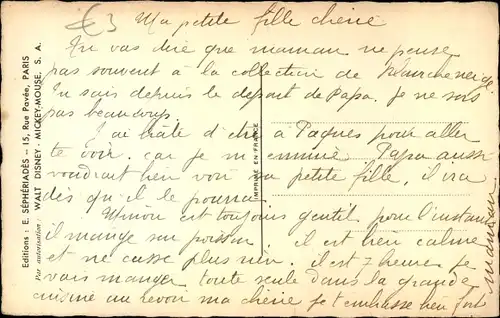 €3
Ma petite fille chérie
Tu vas dire que maman ne pense
pas souvent à la collection de
Tu sais depuis le depart de Papa. je ne sors
pas beaucoup.
J'ai hâte d'être à Paques pour aller
te voir. car je m'ennuie Papa aussi
voudrait bien voir sa petite fille, il ira
dès qu'il le pourra.
Minou est toujours gentil pour l'instant
il mange son poisson. il est bien calme
et ne casse plus rien. il est 7 heures je
vais manger toute seule dans la grande
cuisine au revoir ma cherie je t'embrasse bien fort
maman
Editions : E. SÉPHÉRIADÈS - 15, Rue Pavée, PARIS
Par autorisation : WALT DISNEY - MICKEY-MOUSE, S. A.
IMPRIMÉ EN FRANCE